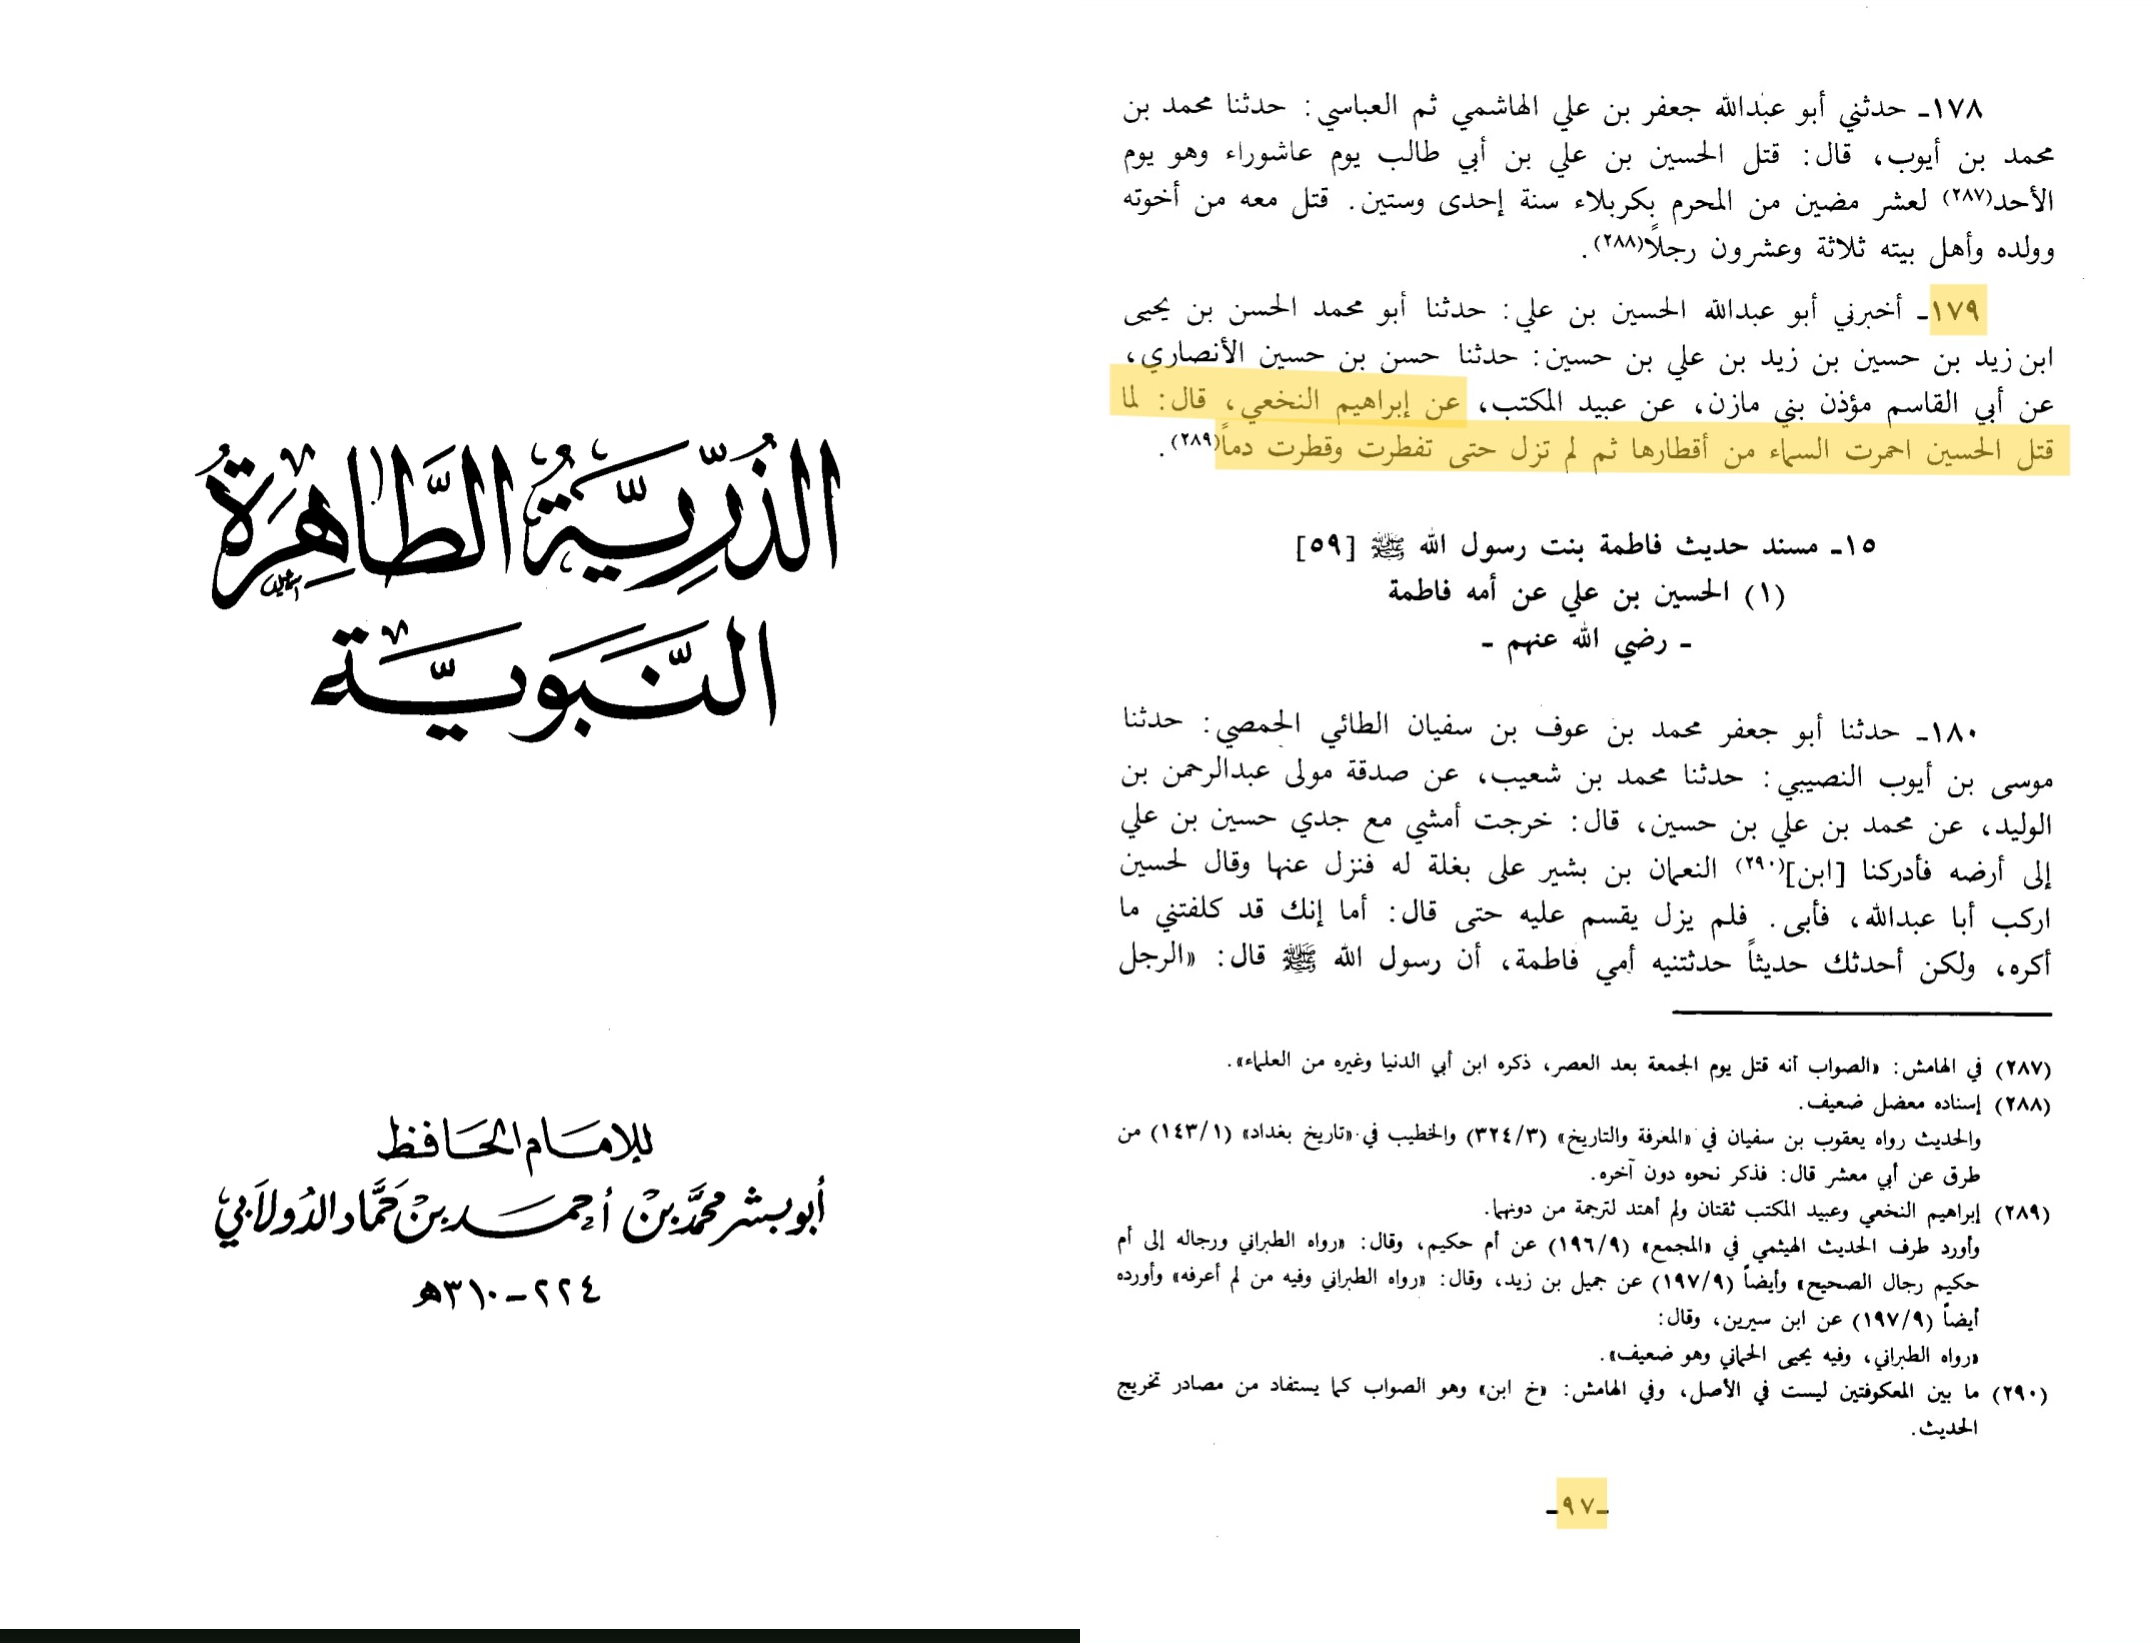 الذُّرِّيَّةُ الطَّاهِرَةُ
النَّبَوِيَّة
للإمام الحافظ
أبو بشر محمَّد بن أحمد بن حمَّاد الدُولابي
٢٢٤ - ٣١٠هـ
١٧٨ـ حدثني أبو عبدالله جعفر بن علي الهاشمي ثم العباسي: حدثنا محمد بن
محمد بن أيوب، قال: قتل الحسين بن علي بن أبي طالب يوم عاشوراء وهو يوم
الأحد(٢٨٧) لعشر مضين من المحرم بكربلاء سنة إحدى وستين. قتل معه من أخوته
وولده وأهل بيته ثلاثة وعشرون رجلاً(٢٨٨).
١٧٩ـ أخبرني أبو عبدالله الحسين بن علي: حدثنا أبو محمد الحسن بن يحيى
ابن زيد بن حسين بن زيد بن علي بن حسين: حدثنا حسن بن حسين الأنصاري،
عن أبي القاسم مؤذن بني مازن، عن عبيد المكتب، عن إبراهيم النخعي، قال: لما
قتل الحسين احمرت السماء من أقطارها ثم لم تزل حتى تفطرت وقطرت دماً(٢٨٩).
١٥ـ مسند حديث فاطمة بنت رسول الله ﷺ [٥٩]
(١) الحسين بن علي عن أمه فاطمة
ـ رضي الله عنهم ـ
١٨٠ـ حدثنا أبو جعفر محمد بن عوف بن سفيان الطائي الحمصي: حدثنا
موسى بن أيوب النصيبي: حدثنا محمد بن شعيب، عن صدقة مولى عبدالرحمن بن
الوليد، عن محمد بن علي بن حسين، قال: خرجت أمشي مع جدي حسين بن علي
إلى أرضه فأدركنا [ابن](٢٩٠) النعمان بن بشير على بغلة له فنزل عنها وقال لحسين
اركب أبا عبدالله، فأبى. فلم يزل يقسم عليه حتى قال: أما إنك قد كلفتني ما
أكره، ولكن أحدثك حديثاً حدثتنيه أمي فاطمة، أن رسول الله ﷺ قال: «الرجل
(٢٨٧) في الهامش: «الصواب أنه قتل يوم الجمعة بعد العصر، ذكره ابن أبي الدنيا وغيره من العلماء».
(٢٨٨) إسناده معضل ضعيف.
والحديث رواه يعقوب بن سفيان في «المعرفة والتاريخ» (٣٢٤/٣) والخطيب في «تاريخ بغداد» (١٤٣/١) من
طرق عن أبي معشر قال: فذكر نحوه دون آخره.
(٢٨٩) إبراهيم النخعي وعبيد المكتب ثقتان ولم أهتد لترجمة من دونهما.
وأورد طرف الحديث الهيثمي في «المجمع» (١٩٦/٩) عن أم حكيم، وقال: «رواه الطبراني ورجاله إلى أم
حكيم رجال الصحيح» وأيضاً (١٩٧/٩) عن جميل بن زيد، وقال: «رواه الطبراني وفيه من لم أعرفه» وأورده
أيضاً (١٩٧/٩) عن ابن سيرين، وقال:
«رواه الطبراني، وفيه يحيى الحماني وهو ضعيف».
(٢٩٠) ما بين المعكوفتين ليست في الأصل، وفي الهامش: «خ ابن» وهو الصواب كما يستفاد من مصادر تخريج
الحديث.
ـ٩٧ـ